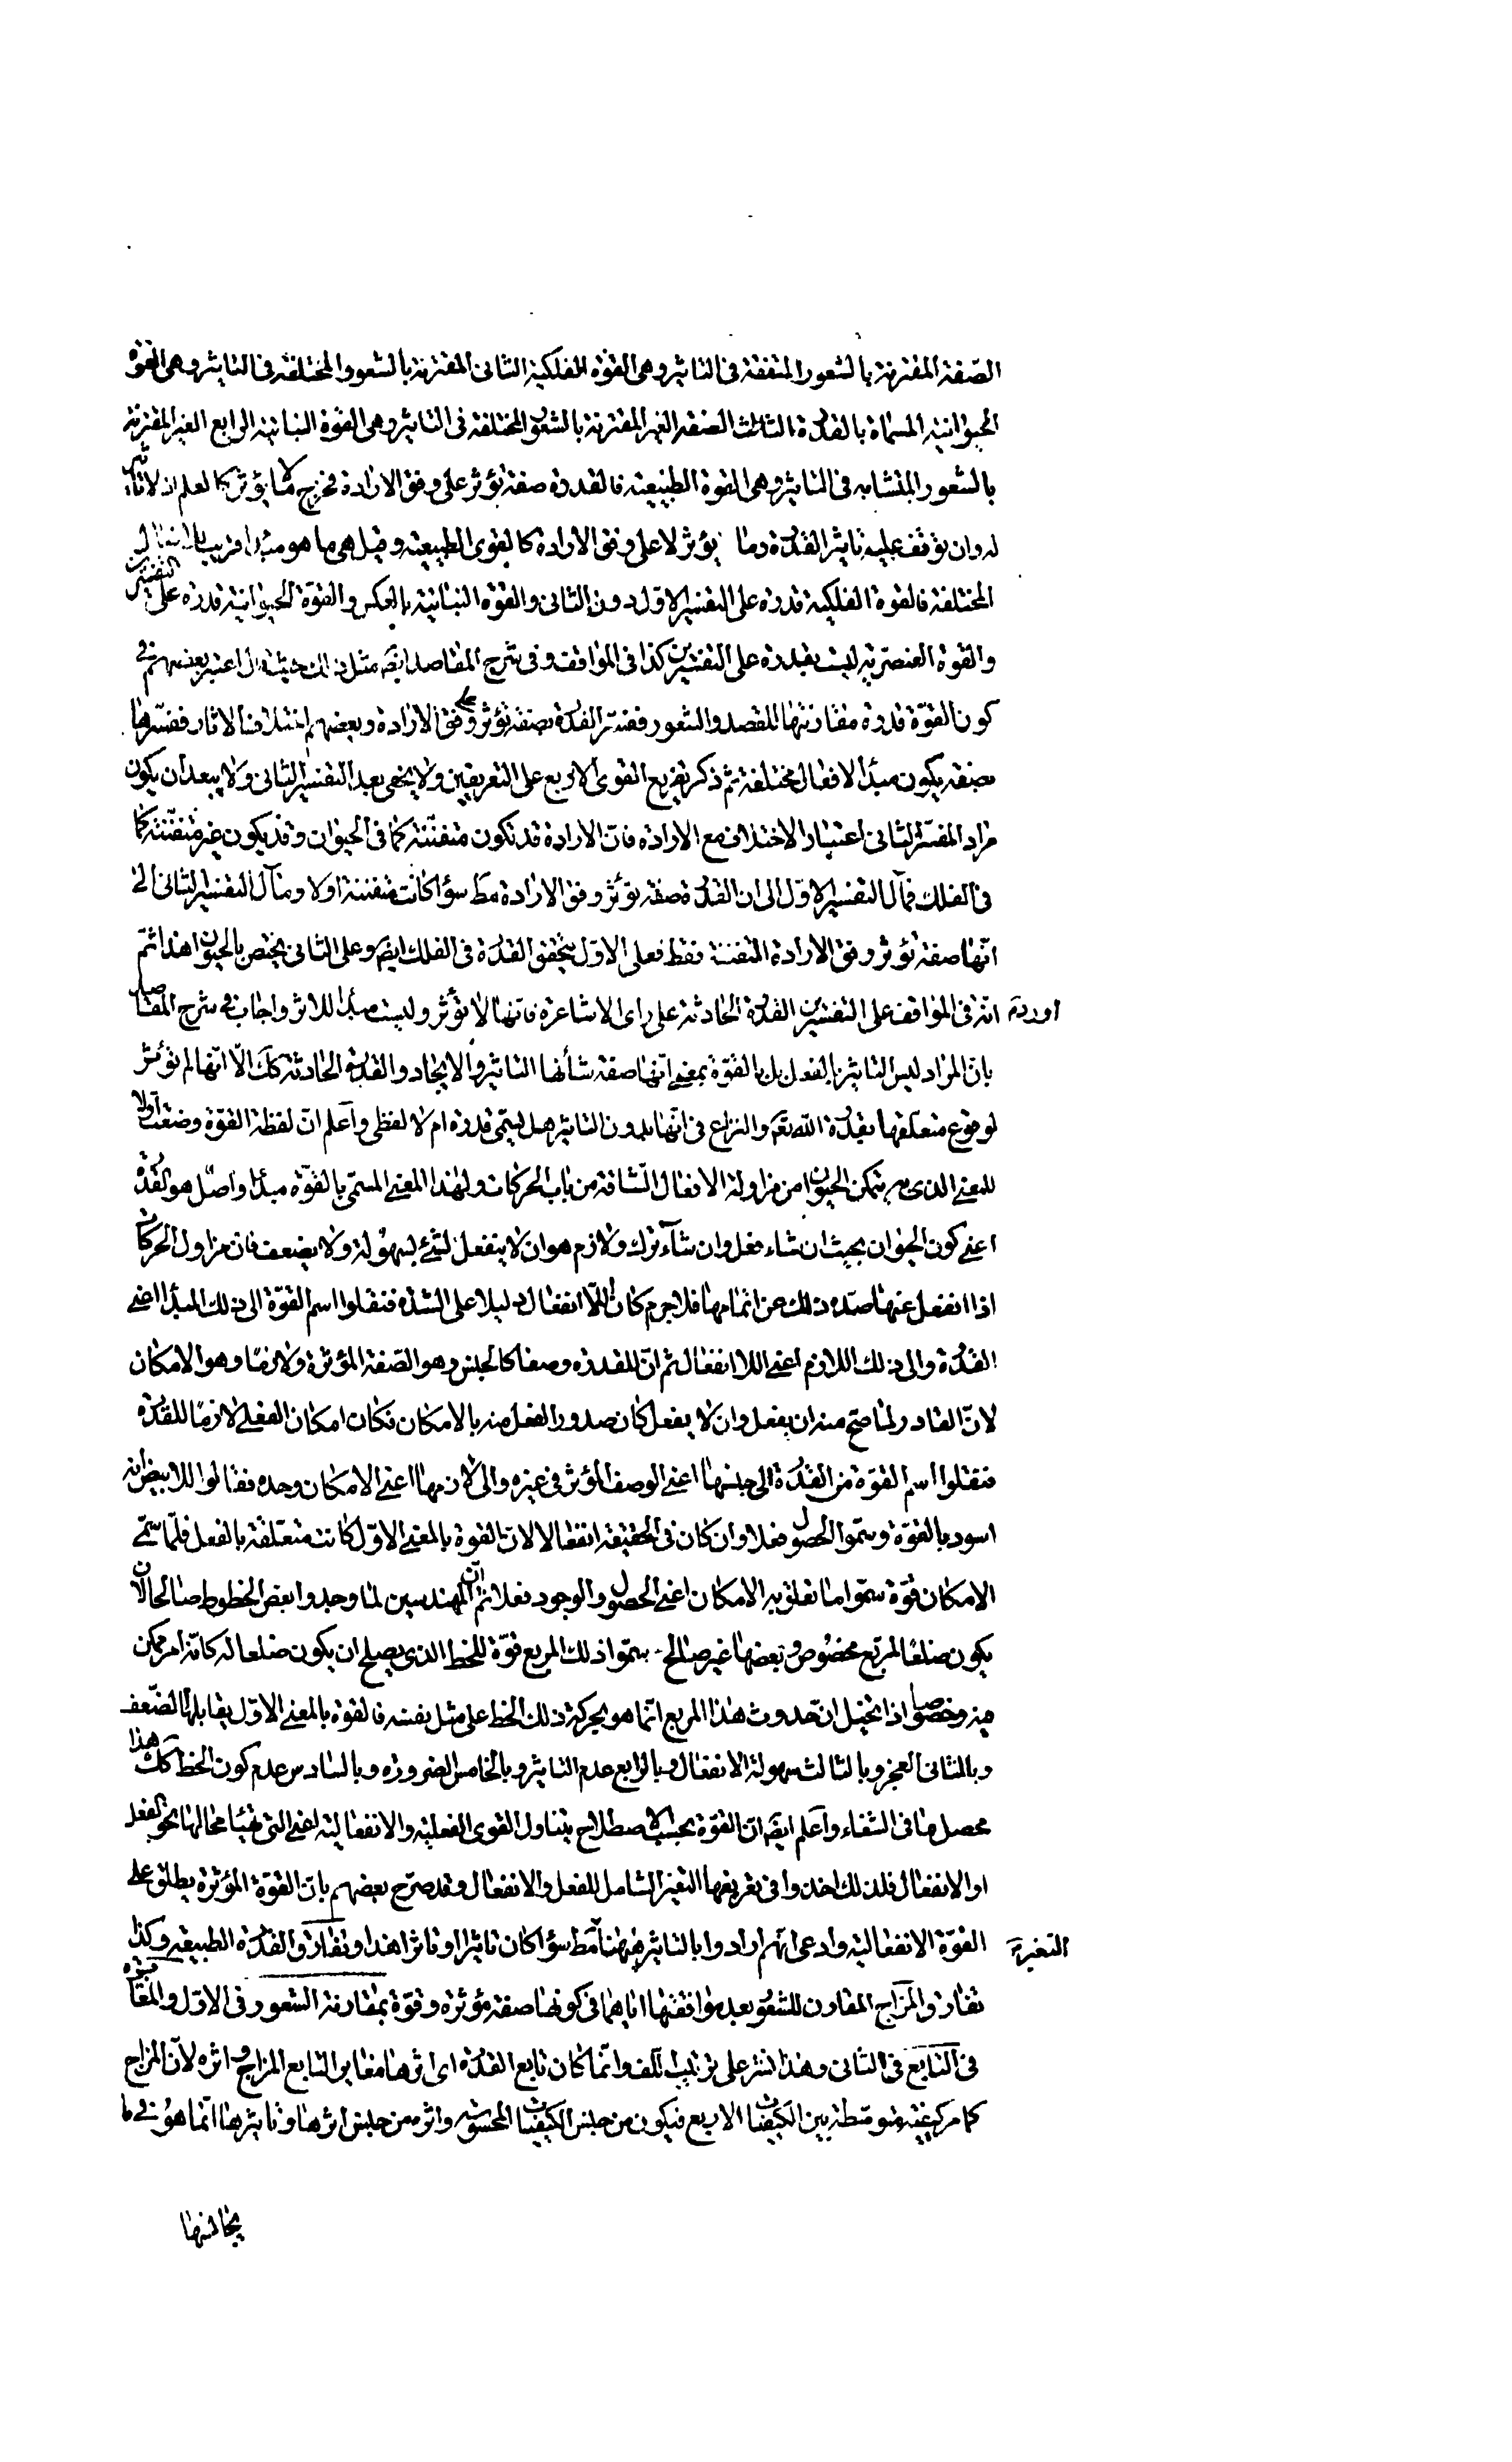 الصّفة المقترنة بالشعور المتفقة فى التاثير وهى القوّة الفلكية الثانى المقترنة بالشعور والمختلفة فى التاثير وهى القوة
الحيوانية المسماة بالقدرة الثالث الصفة الغير المقترنة بالشعور المختلفة فى التاثير وهى القوة النباتية الرابع الغير المقترنة
بالشعور المتشابه فى التاثير وهى القوة الطبيعية فالقدرة صفة تؤثر على وفق الارادة فخرج ما لا يؤثر كالعلم اذ لا تاثير
له وان توقف عليه تاثير القدرة وما يؤثر لا على وفق الارادة كالقوى الطبيعية وقيل هى ما هو مبدأ قريب للافعال
المختلفة فالقوة الفلكية قدرة على التفسير الاول دون الثانى والقوة النباتية بالعكس والقوّة الحيوانية قدرة على التفسيرين
والقوة العنصريّة ليست بقدرة على التفسيرين كذا فى المواقف وفى شرح المقاصد ايضا مثل ذلك حيث قال اعتبر بعضهم فى
كون القوّة قدرة مقارنتها للقصد والشعور ففسّر القدرة بصفة تؤثر على وفق الارادة وبعضهم اختلاف الاثار ففسّرها
بصفة يكون مبدأ لافعال مختلفة ثم ذكر تفريع القوى الاربع على التعريفين ولا يخفى بعد التفسير الثانى ولا يبعد ان يكون
مراد المفسّر الثانى اعتبار الاختلاف مع الارادة فان الارادة قد تكون متفنّنة كما فى الحيوان وقد يكون غير متفنّنة كما
فى الفلك فمآل التفسير الاوّل الى ان القدرة صفة تؤثر وفق الارادة مط سواء كانت متفننة اولا ومآل التفسير الثانى الى
انّها صفة تؤثر وفق الارادة المتفننة فقط فعلى الاوّل يتحقق القدرة فى الفلك ايضا وعلى الثانى يختص بالحيوان هذا ثمّ
انّه فى المواقف اورد على التفسيرين القدرة الحادثة على راى الاشاعرة فانها لا تؤثر وليست مبدأ للاثر واجاب فى شرح المقاصد
بانّ المراد ليس التاثير بالفعل بل بالقوّة بمعنى انّها صفة شأنها التاثير والايجاد والقدرة الحادثة كك الّا انّها لم تؤثر
لوقوع متعلقها بقدرة الله تعالى والنزاع فى انّها بدون التاثير هل يسمّى قدرة ام لا لفظى واعلم انّ لفظة القوّة وضعت اولا
للمعنى الذى به يتمكن الحيوان من مزاولة الافعال الشاقة من باب الحركات ولهذا المعنى المسمّى بالقوّة مبدأ واصل هو القدرة
اعنى كون الحيوان بحيث ان شاء فعل وان شاء ترك ولازم هو ان لا ينفعل لشئ بسهولة ولا يضعف فان مزاول الحركات
اذا انفعل عنها صدّه ذلك عن اتمامها فلا جرم كان اللّا انفعال دليلا على الشدّة فنقلوا اسم القوّة الى ذلك المبدأ اعنى
القدرة والى ذلك اللازم اعنى اللا انفعال ثم انّ للقدرة وصفا كالجنس وهو الصّفة المؤثرة ولازما وهو الامكان
لانّ القادر لما صحّ منه ان يفعل وان لا يفعل كان صدور الفعل منه بالامكان فكان امكان الفعل لازما للقدرة
فنقلوا اسم القوّة من القدرة الى جنسها اعنى الوصف المؤثر فى غيره والى لازمها اعنى الامكان وحده فقالوا للابيض انه
اسود بالقوّة وسمّوا الحصول فعلا وان كان فى الحقيقة انفعالا لان القوة بالمعنى الاوّل كانت متعلقة بالفعل فلمّا سمّى
الامكان قوّة سمّوا ما تعلق به الامكان اعنى الحصول والوجود فعلا ثم انّ المهندسين لما وجدوا بعض الخطوط صالحا لان
يكون ضلعا لمربّع مخصوص وبعضها غير صالح سمّوا ذلك المربع قوّة للخط الذى يصلح ان يكون ضلعا له كانّه امر ممكن
فيه وخصوصا اذا تخيل انّ حدوث هذا المربع انّما هو بحركة ذلك الخط على مثل نفسه فالقوة بالمعنى الاوّل يقابلها الضّعف
وبالثانى العجز وبالثالث سهولة الانفعال وبالرابع عدم التاثير وبالخامس الضرورة وبالسادس عدم كون الخط كك هذا
محصل ما فى الشفاء واعلم ايضا انّ القوّة بحسب الاصطلاح يتناول القوى الفعلية والانفعالية اعنى التى تهيّأ محالها نحو الفعل
او الانفعال فلذلك اخذوا فى تعريفها التغير الشامل للفعل والانفعال وقد صرّح بعضهم بان القوّة المؤثرة يطلق على
القوّة الانفعالية وادعى انّهم ارادوا بالتاثير التغير ههنا مط سواء كان تاثيرا او تاثرا هذا وتفارق القدرة الطبيعة وكذا
تفارق المزاج المقارن للشعور بعد موافقتها اياهما فى كونها صفة مؤثرة وقوّة بمقارنة الشعور فى الاوّل والمغايرة
فى التابع فى الثانى وهذا نشر على ترتيب اللف وانّما كان تابع القدرة اى اثرها مغاير التابع المزاج واثره لانّ المزاج
كما مر كيفية متوسّطة بين الكيفيات الاربع فيكون من جنس الكيفيات المحسوسة واثره من جنس اثرها وتاثيرها انّما هو فى ما
يجانسها